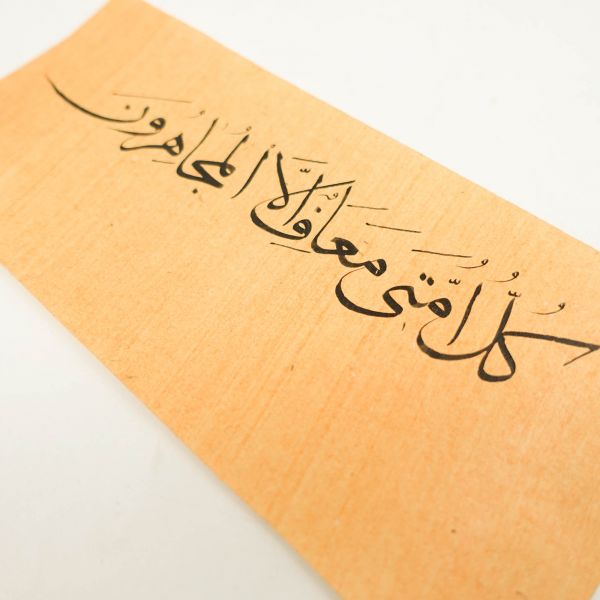 كُلُّ اُمَّتَى مَعَافً اِلَّا الْمُجَاهِرُونَ